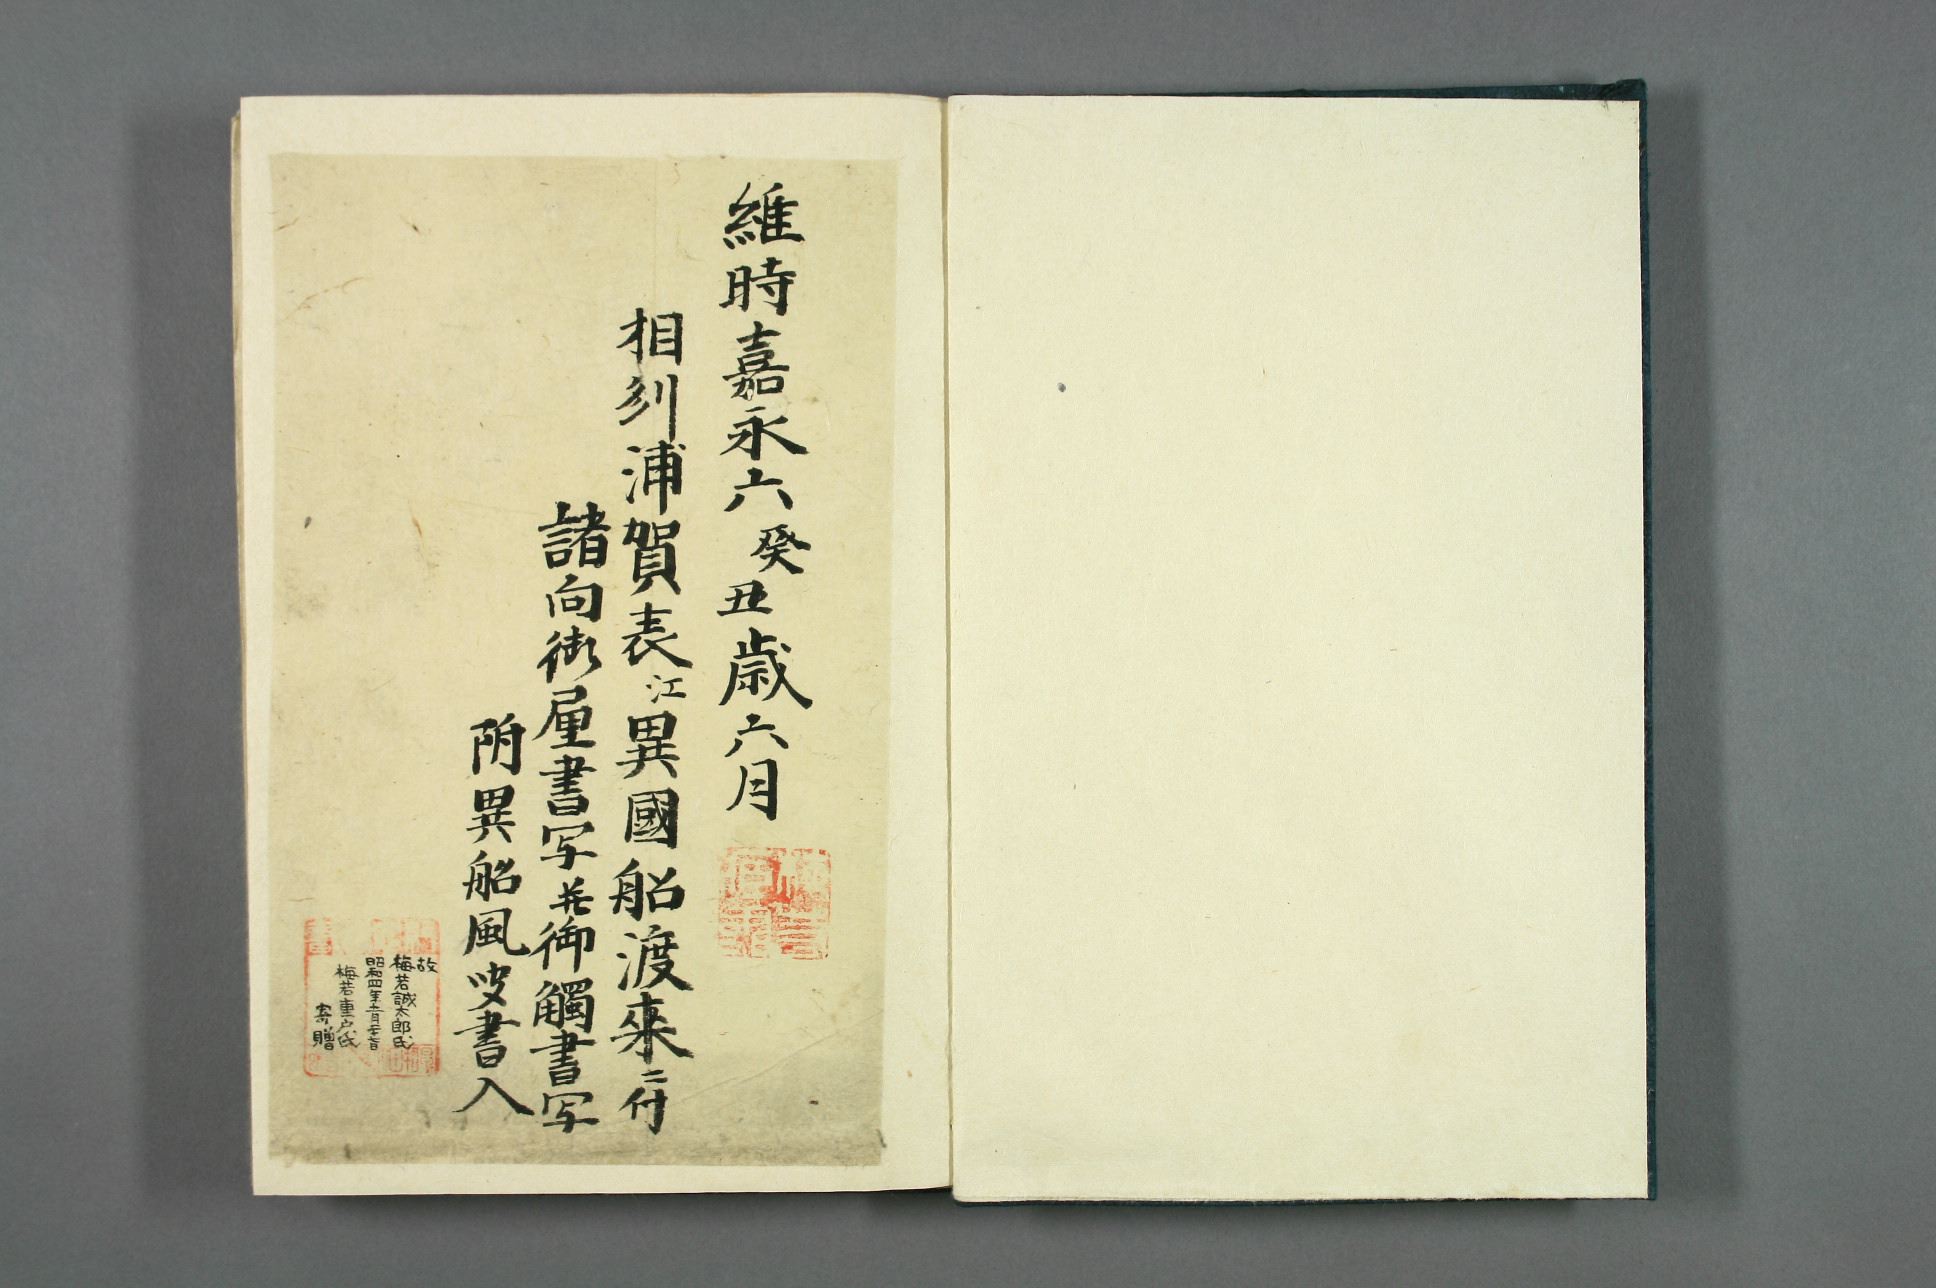 維時嘉永六癸丑歳六月
相刕浦賀表江異國船渡来ニ付
諸向御届書写并御觸書写
附異船風吏書入
故
梅若誠太郎氏
昭和四年
梅若重戸氏
寄贈